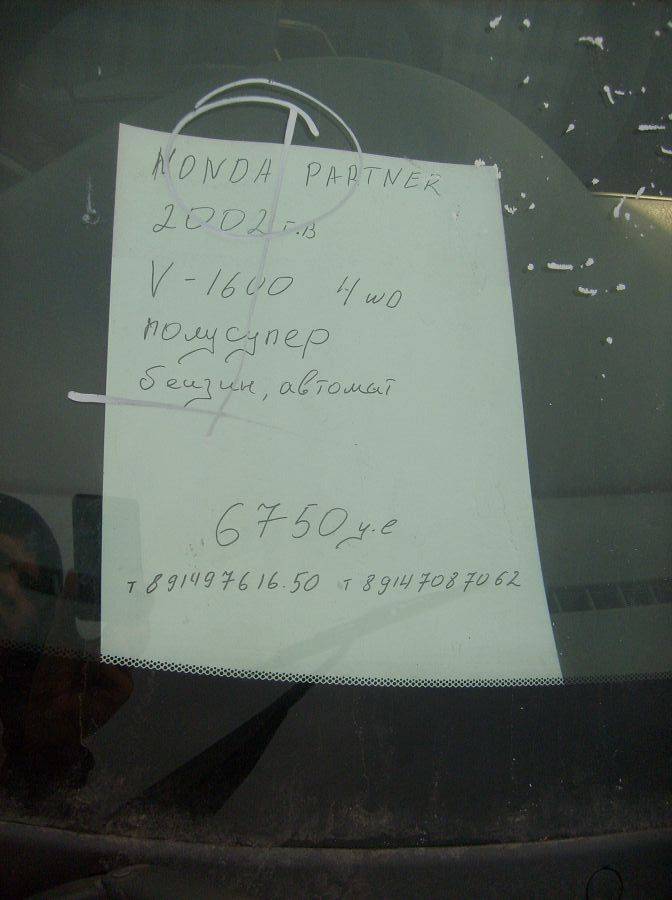 HONDA PARTNER
2002 г.в
V-1600 4WD
полусупер
бензин, автомат
6750 у.е
т 891497616.50 т 89147087062